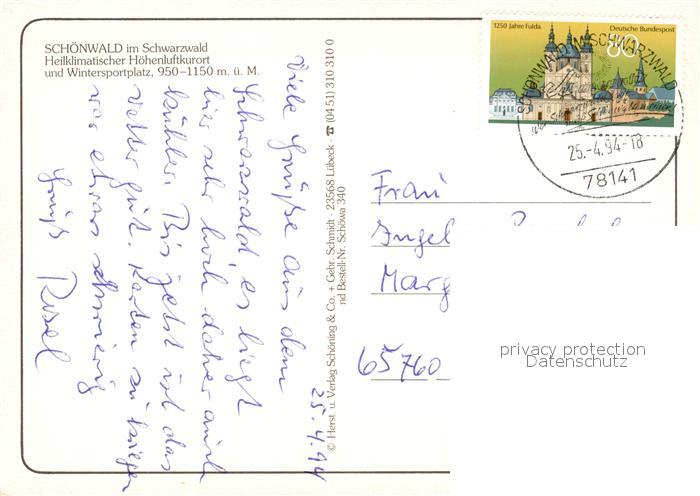 SCHÖNWALD im Schwarzwald
Heilklimatischer Höhenluftkurort
und Wintersportplatz, 950–1150 m. ü. M.
25.4.94
Viele Grüße aus dem
Schwarzwald, es liegt
hier sehr hoch daher auch
kühler. Bis jetzt ist das
Wetter gut. Karten zu kriegen
war etwas schwierig
Gruß Rosel
© Herst. u. Verlag Schöning & Co. + Gebr. Schmidt · 23568 Lübeck · ☎ (04 51) 310 310 0
nd Bestell-Nr. Schöwa 340
1250 Jahre Fulda
Deutsche Bundespost
80
SCHÖNWALD IM SCHWARZWALD
25.-4.94-18
78141
Frau
Ingel
Marg
65760
privacy protection
Datenschutz